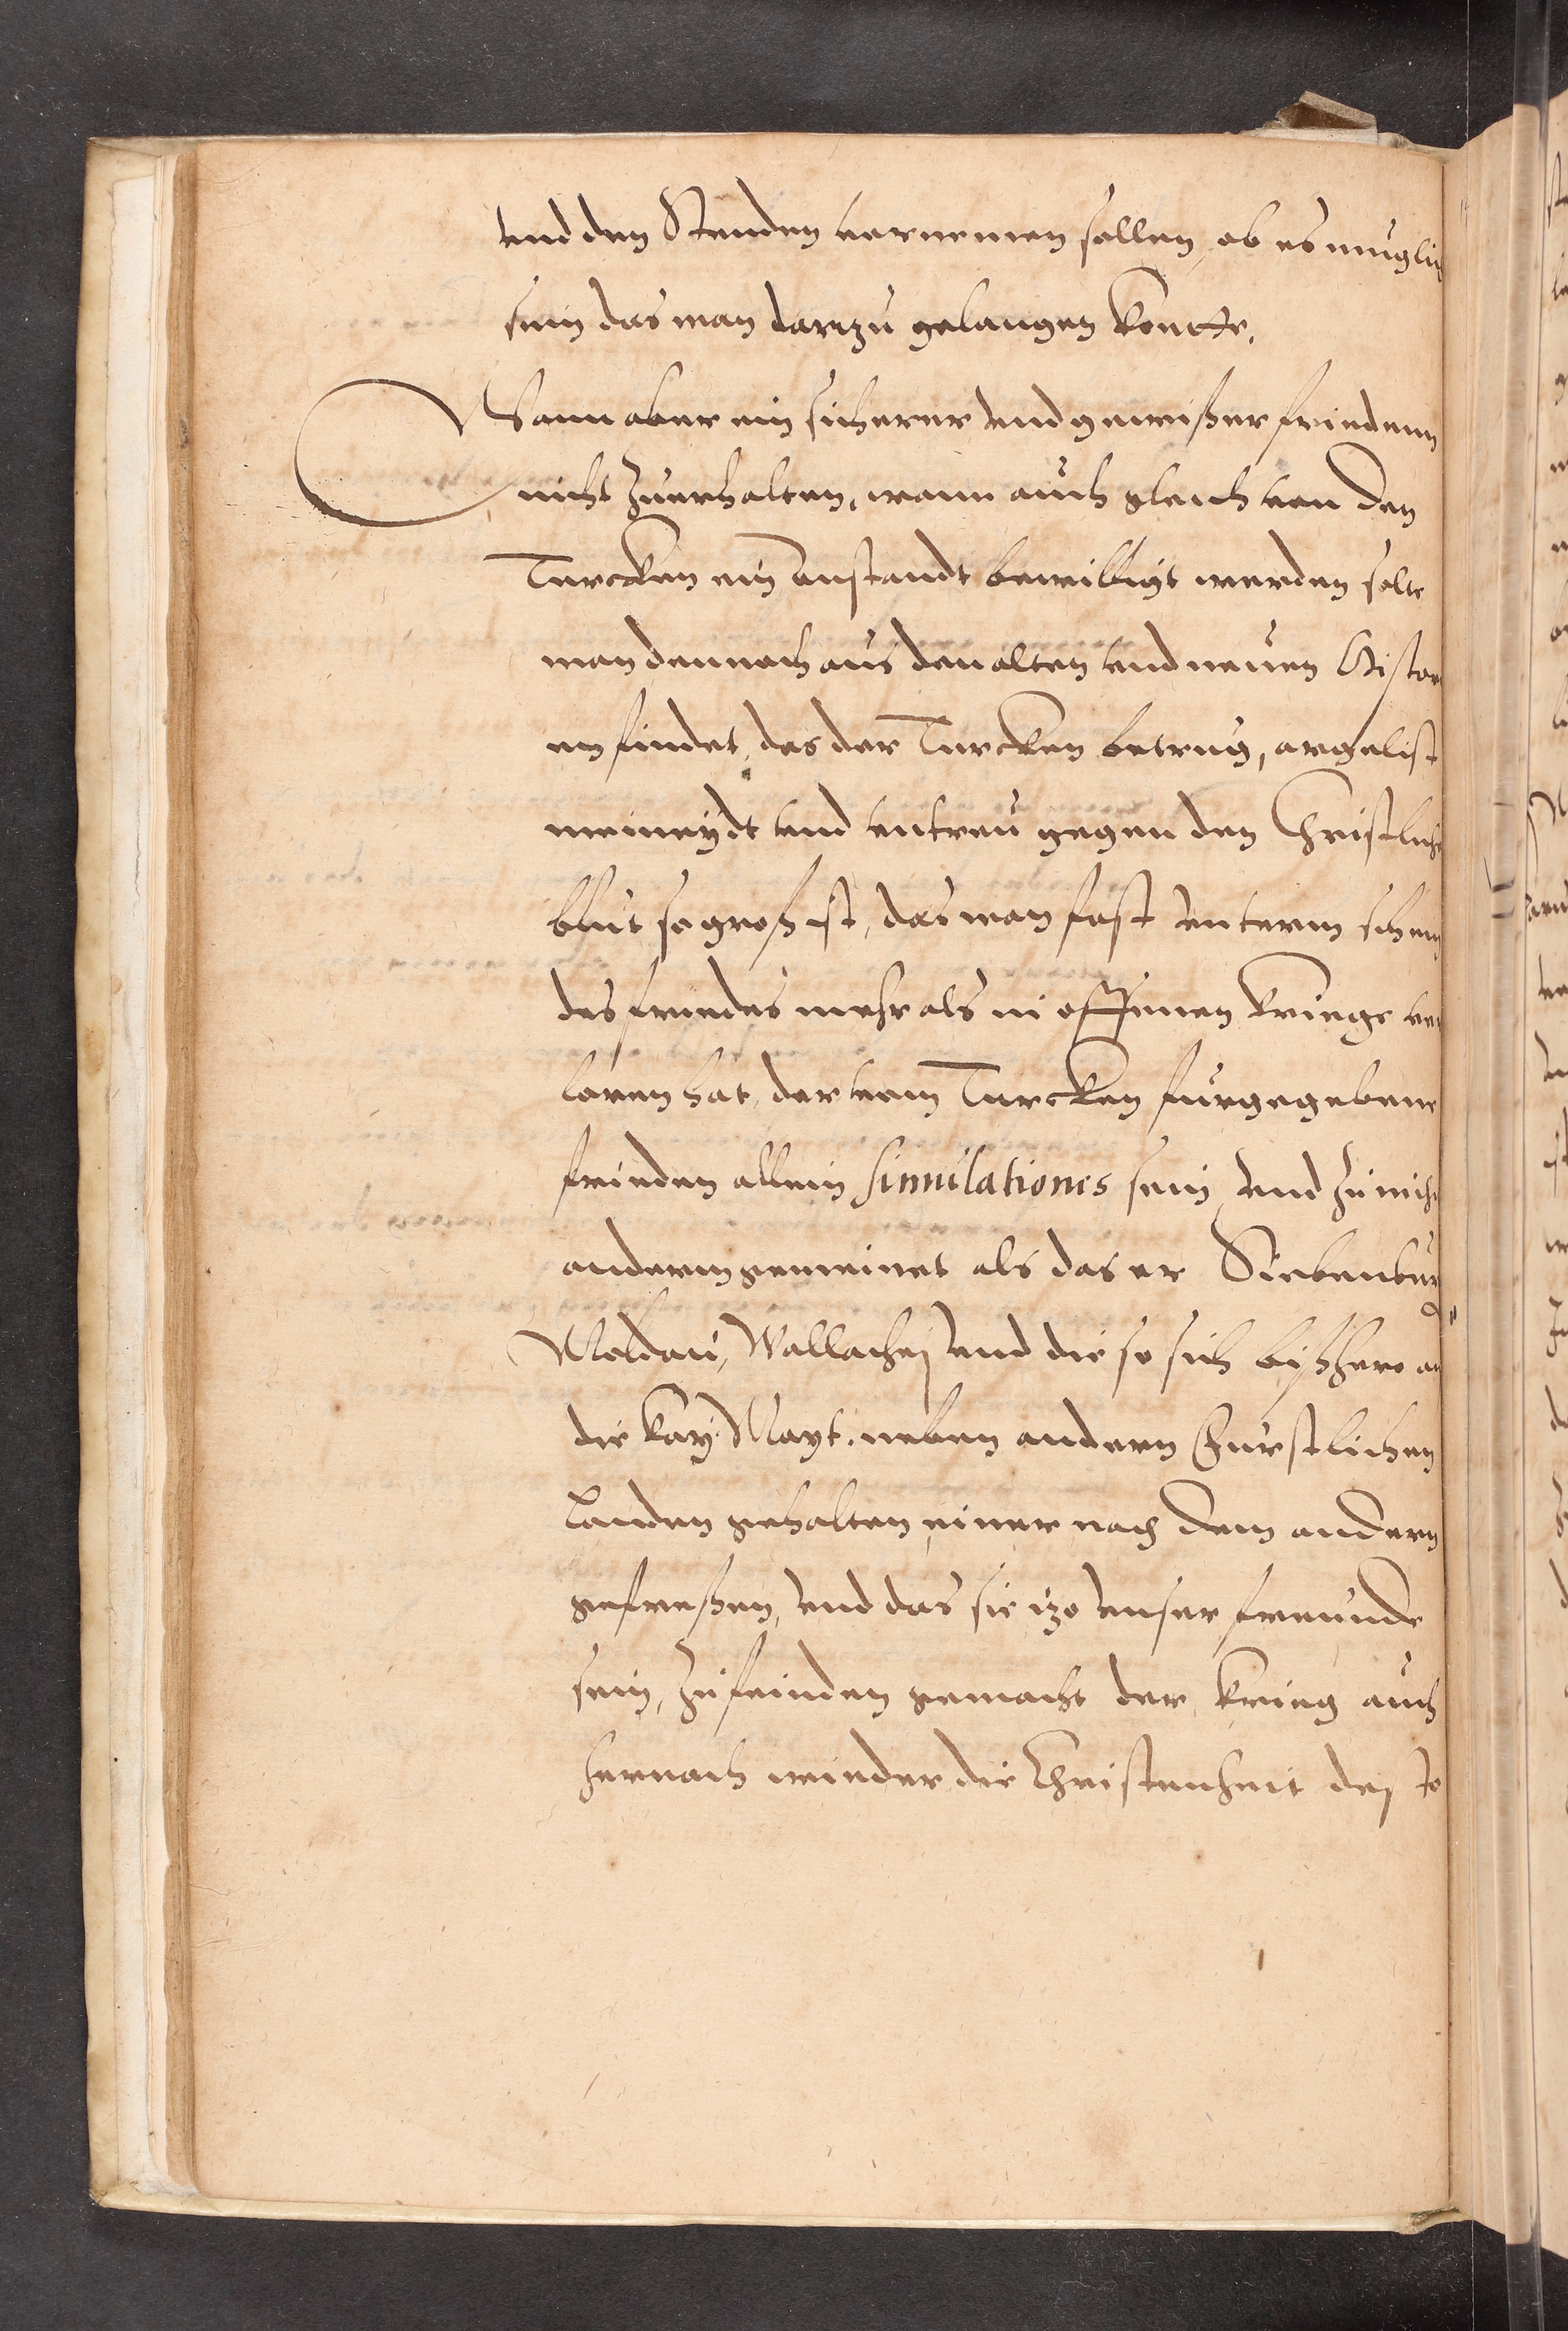 vnd den Stenden vornemen sollen, ob es muglich
sein das man darzu gelangen konte.
Wann aber ein sicherer vnd gewißer frieden
nicht zuerhalten, wann auch gleich von den
Turcken ein anstandt bewilligt werden solte
man dennoch aus den alten vnd neuen Histori
en findet, das der Turcken betrug, argelist
meineydt vnd vntreu gegen den Christlichen
blut so groß ist, das man fast vnterm schein
des friedes mehr als in offenen kriege ver
loren hat, der vom Turcken furgegebene
frieden allein simulationes sein, vnd zu nichts
anderm gemeinet als das er Siebenburg
Moldau, Wallachej vnd die so sich bißhero an
die Kay: Mayt. neben andern Furstlichen
Landen gehalten, einer nach dem andern
gefreßen, vnd das sie izo vnser freunde
sein, zu feinden gemacht der krieg auch
hernach wieder die Christenheit des to